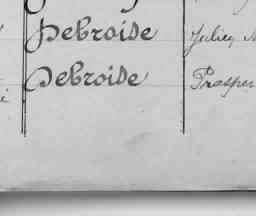 Debroise Julien
Debroise Prosper